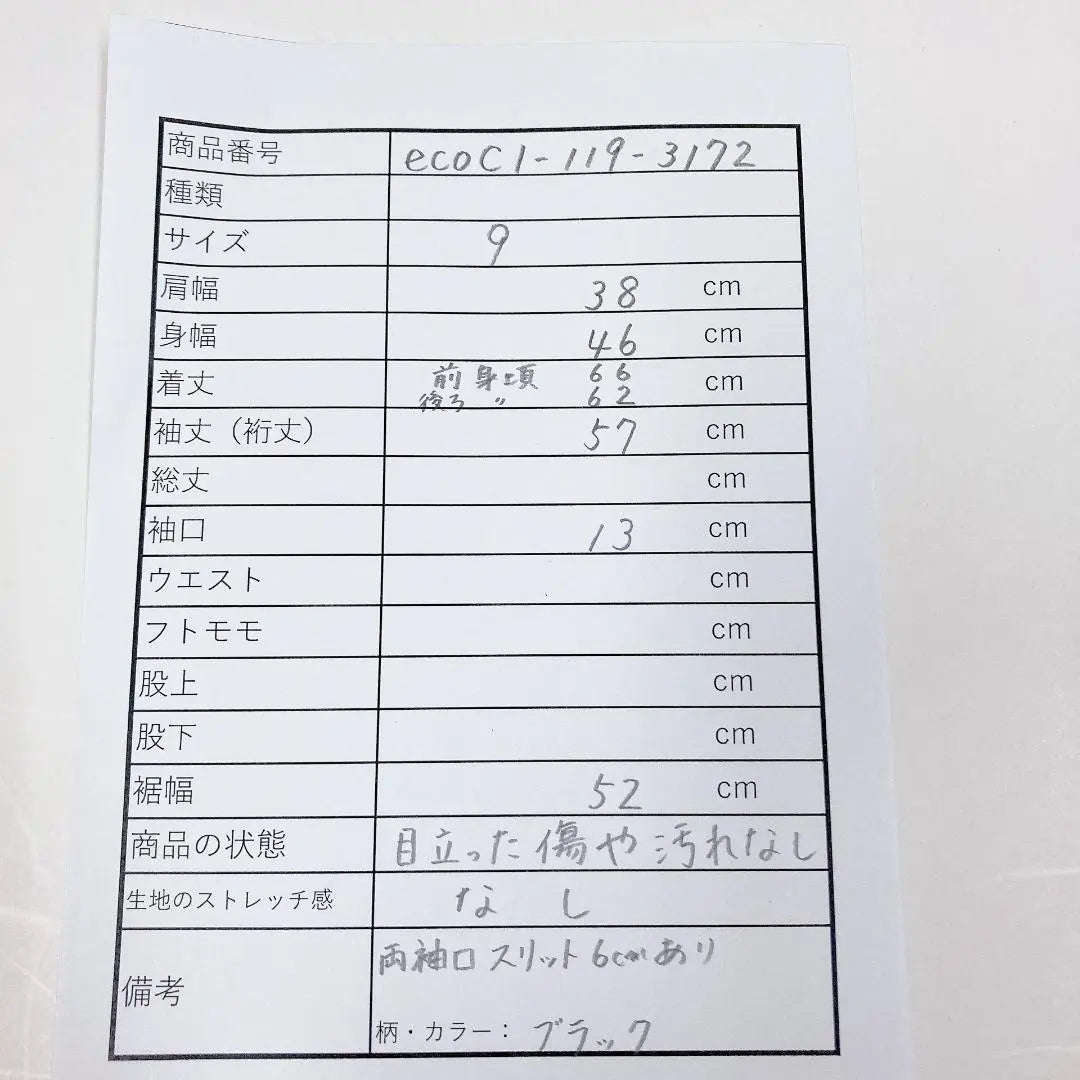 商品番号 ecoC1-119-3172
種類
サイズ 9
肩幅 38 cm
身幅 46 cm
着丈 前身頃 66 cm
後ろ 〃 62
袖丈（裄丈） 57 cm
総丈 cm
袖口 13 cm
ウエスト cm
フトモモ cm
股上 cm
股下 cm
裾幅 52 cm
商品の状態 目立った傷や汚れなし
生地のストレッチ感 なし
備考 両袖口スリット6cmあり
柄・カラー： ブラック